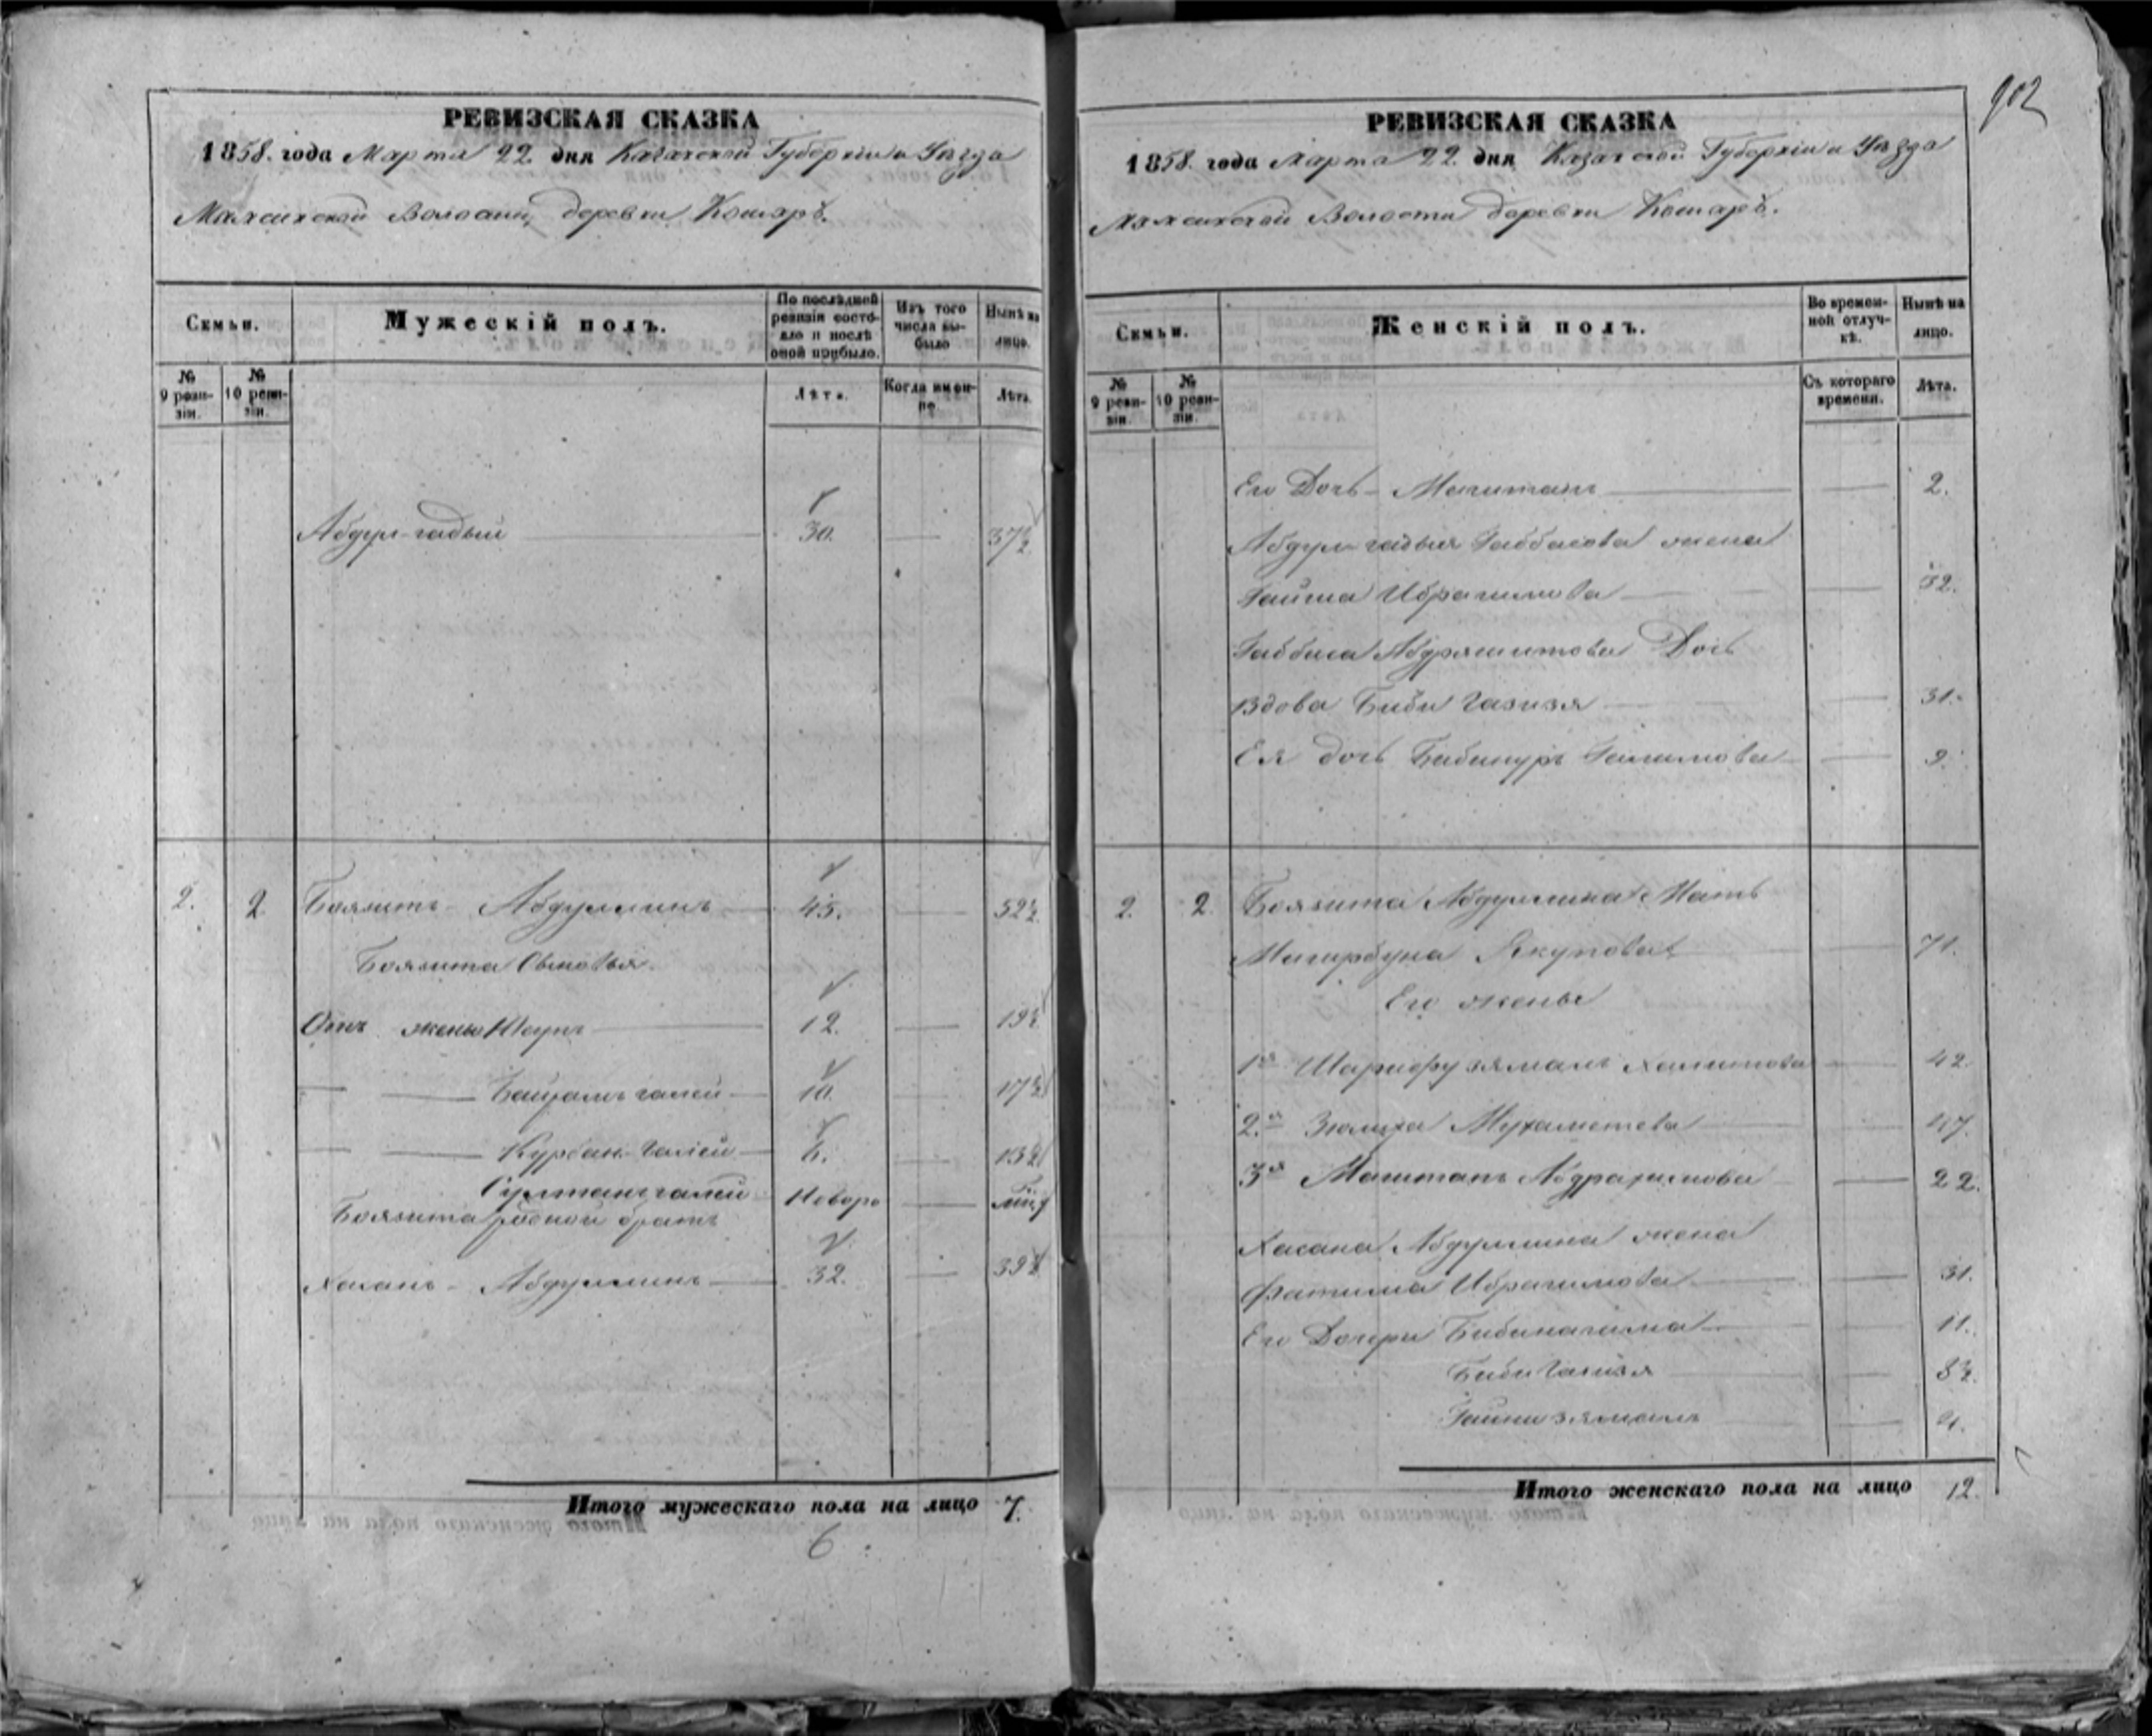 902
РЕВИЗСКАЯ СКАЗКА
1858. года Марта 22. дня Казанской Губерніи и Уѣзда
Мамсинской Волости, деревни Кошаръ.
Семьи.
Мужескій полъ.
По послѣдней ревизіи состояло и послѣ оной прибыло.
Изъ того числа выбыло
Нынѣ на лицо.
№ 9 ревизіи.
№ 10 ревизіи.
Лѣта.
Когда именно.
Лѣта.
Абдул-гадый 30. 37½
2. 2 Боязитъ Абдуллинъ 45. 52½
Боязита Сыновья.
Отъ жены Юсупъ 12. 19½
Байрамъ галей 10. 17½
Курбан-галей 6. 13½
Султангалей Новоро
Боязита родной братъ
Хасанъ Абдуллинъ 32. 39½
Итого мужескаго пола на лицо 7.
6
РЕВИЗСКАЯ СКАЗКА
1858. года Марта 22. дня Казанской Губерніи и Уѣзда
Мамсинской Волости деревни Кошаръ.
Семьи.
Женскій полъ.
Во временной отлучкѣ.
Нынѣ на лицо.
№ 9 ревизіи.
№ 10 ревизіи.
Съ котораго времени.
Лѣта.
Его Дочь Магитапъ 2.
Абдул-гадыя Габбасова жена
Гайша Ибрагимова 32.
Габбаса Абдряшитова Дочь
Вдова Биби Газизя 31.
Ея дочь Бибинуръ Галимова 9.
2. 2. Боязита Абдуллина Мать
Якупова 71.
Его жены
1я Шарифузямалъ Халитова 42.
2.я Зюлиха Мухаметева 47.
3я Магитапъ Абдрахимова 22.
Хасана Абдуллина жена
Фатима Ибрагимова 31.
Его Дочери Бибинагима 11.
Биби Газизя 8½.
Гайнизямалъ
Итого женскаго пола на лицо 12.